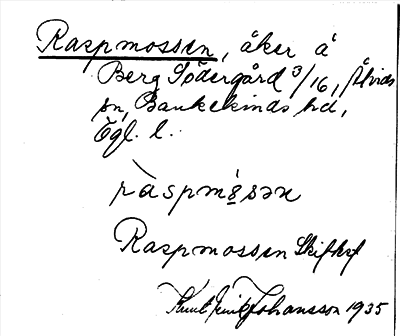 Raspmossen, åker å
Berg Södergård 3/16, Åtvids
sn, Bankekinds hd,
Ögl. l.
ràspmʹɷ̣sən
Raspmossen Skifteskf
Knut Emil Johansson 1935